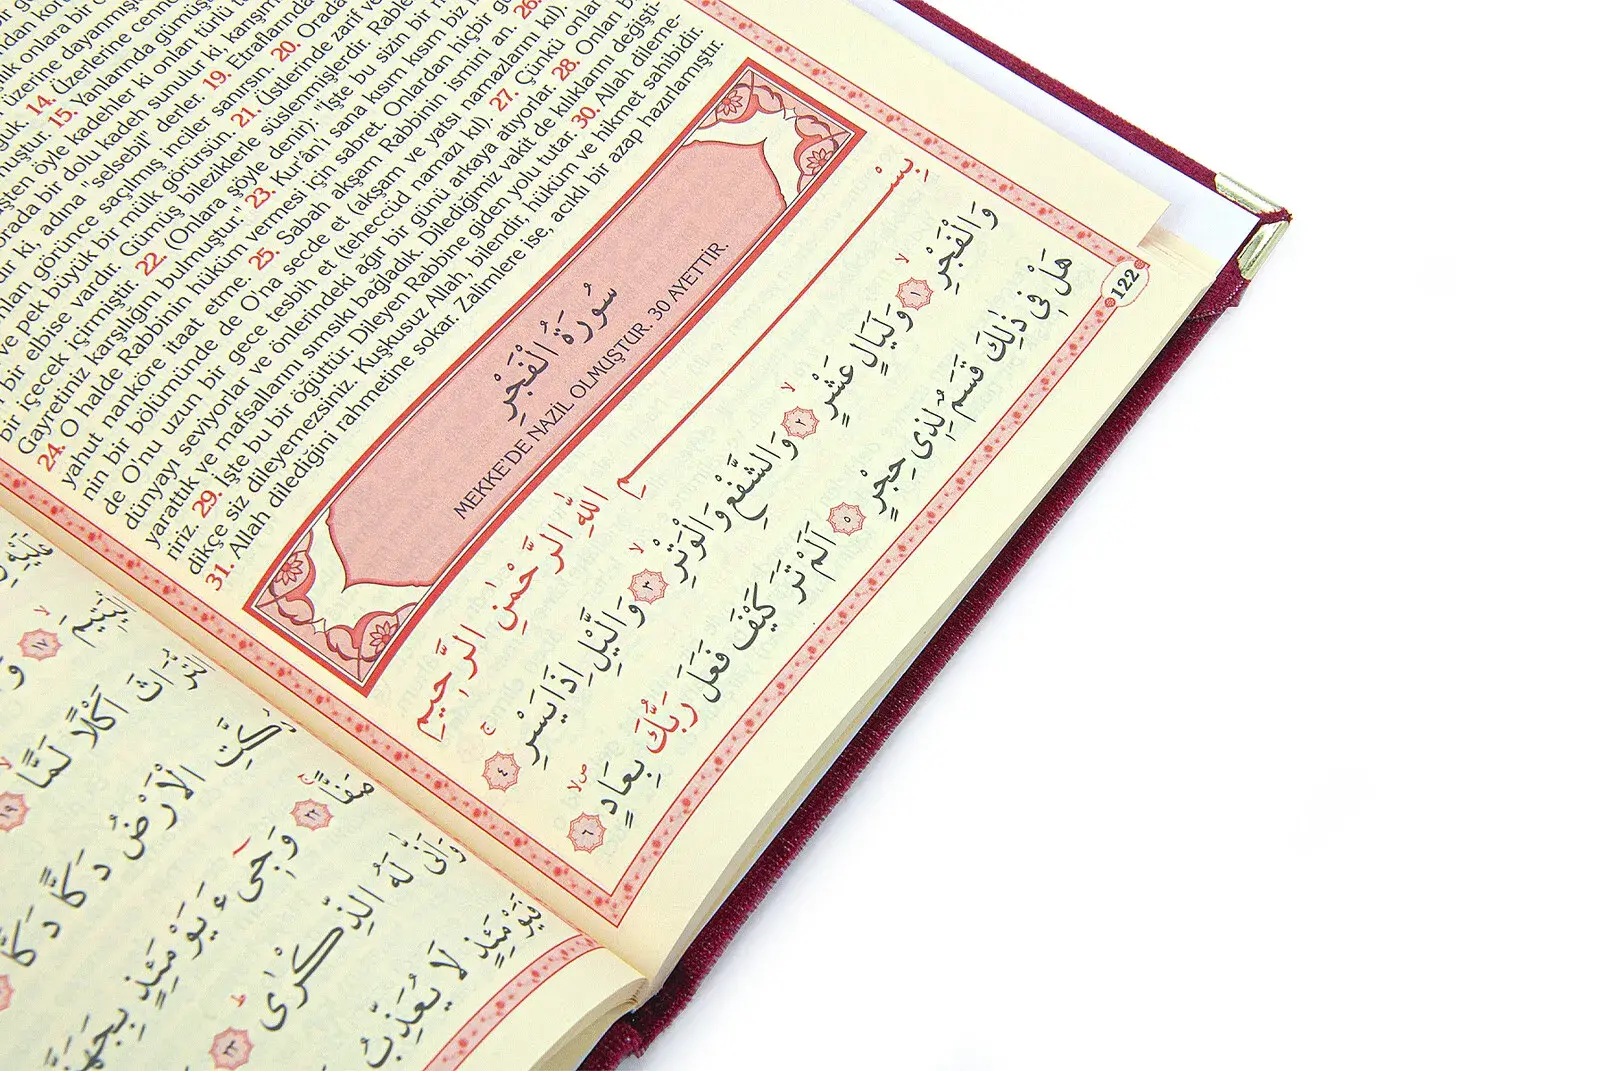 14. Üzerlerine cenne
15. Yanlarında gümüş
işten öyle kadehler ki onları türlü t
orada bir dolu kadeh sunulur ki, karışım
dır ki, adına "selsebil" derler. 19. Etraflarında
nları görünce saçılmış inciler sanırsın. 20. Orada
ve pek büyük bir mülk görürsün. 21. Üstlerinde zarif ve
bir elbise vardır. Gümüş bileziklerle süslenmişlerdir. Rable
bir içecek içirmiştir. 22. (Onlara şöyle denir): "İşte bu sizin bir m
Gayretiniz karşılığını bulmuştur. 23. Kur'ân'ı sana kısım kısım biz i
24. O halde Rabbinin hüküm vermesi için sabret. Onlardan hiçbir g
yahut nanköre itaat etme. 25. Sabah akşam Rabbinin ismini an. 26.
nin bir bölümünde de O'na secde et (akşam ve yatsı namazlarını kıl).
de O'nu uzun bir gece tesbih et (teheccüd namazı kıl). 27. Çünkü onlar
dünyayı seviyorlar ve önlerindeki ağır bir günü arkaya atıyorlar. 28. Onları b
yarattık ve mafsallarını sımsıkı bağladık. Dilediğimiz vakit de kılıklarını değişti-
ririz. 29. İşte bu bir öğüttür. Dileyen Rabbine giden yolu tutar. 30. Allah dileme-
dikçe siz dileyemezsiniz. Kuşkusuz Allah, bilendir, hüküm ve hikmet sahibidir.
31. Allah dilediğini rahmetine sokar. Zalimlere ise, acıklı bir azap hazırlamıştır.
سُورَةُ الْفَجْرِ
MEKKE'DE NAZİL OLMUŞTUR. 30 AYETTİR.
بِسْمِ اللّٰهِ الرَّحْمٰنِ الرَّحِيمِ
وَالْفَجْرِ ۙ ١ وَلَيَالٍ عَشْرٍ ۙ ٢ وَالشَّفْعِ وَالْوَتْرِ ۙ ٣ وَالَّيْلِ اِذَا يَسْرِ ۚ ٤
هَلْ فِى ذٰلِكَ قَسَمٌ لِذِى حِجْرٍ ٥ اَلَمْ تَرَ كَيْفَ فَعَلَ رَبُّكَ بِعَادٍ ۙ ٦
122
١٧
التُّرَاثَ اَكْلًا لَمًّا ۙ ١٩
كَّتِ الْاَرْضُ دَكًّا دَكًّا
صَفًّا ۚ ٢٢ وَجِىءَ يَوْمَئِذٍ بِجَهَنَّمَ
وَاَنّٰى لَهُ الذِّكْرٰى ۜ ٢٣
يَوْمَئِذٍ لَا يُعَذِّبُ